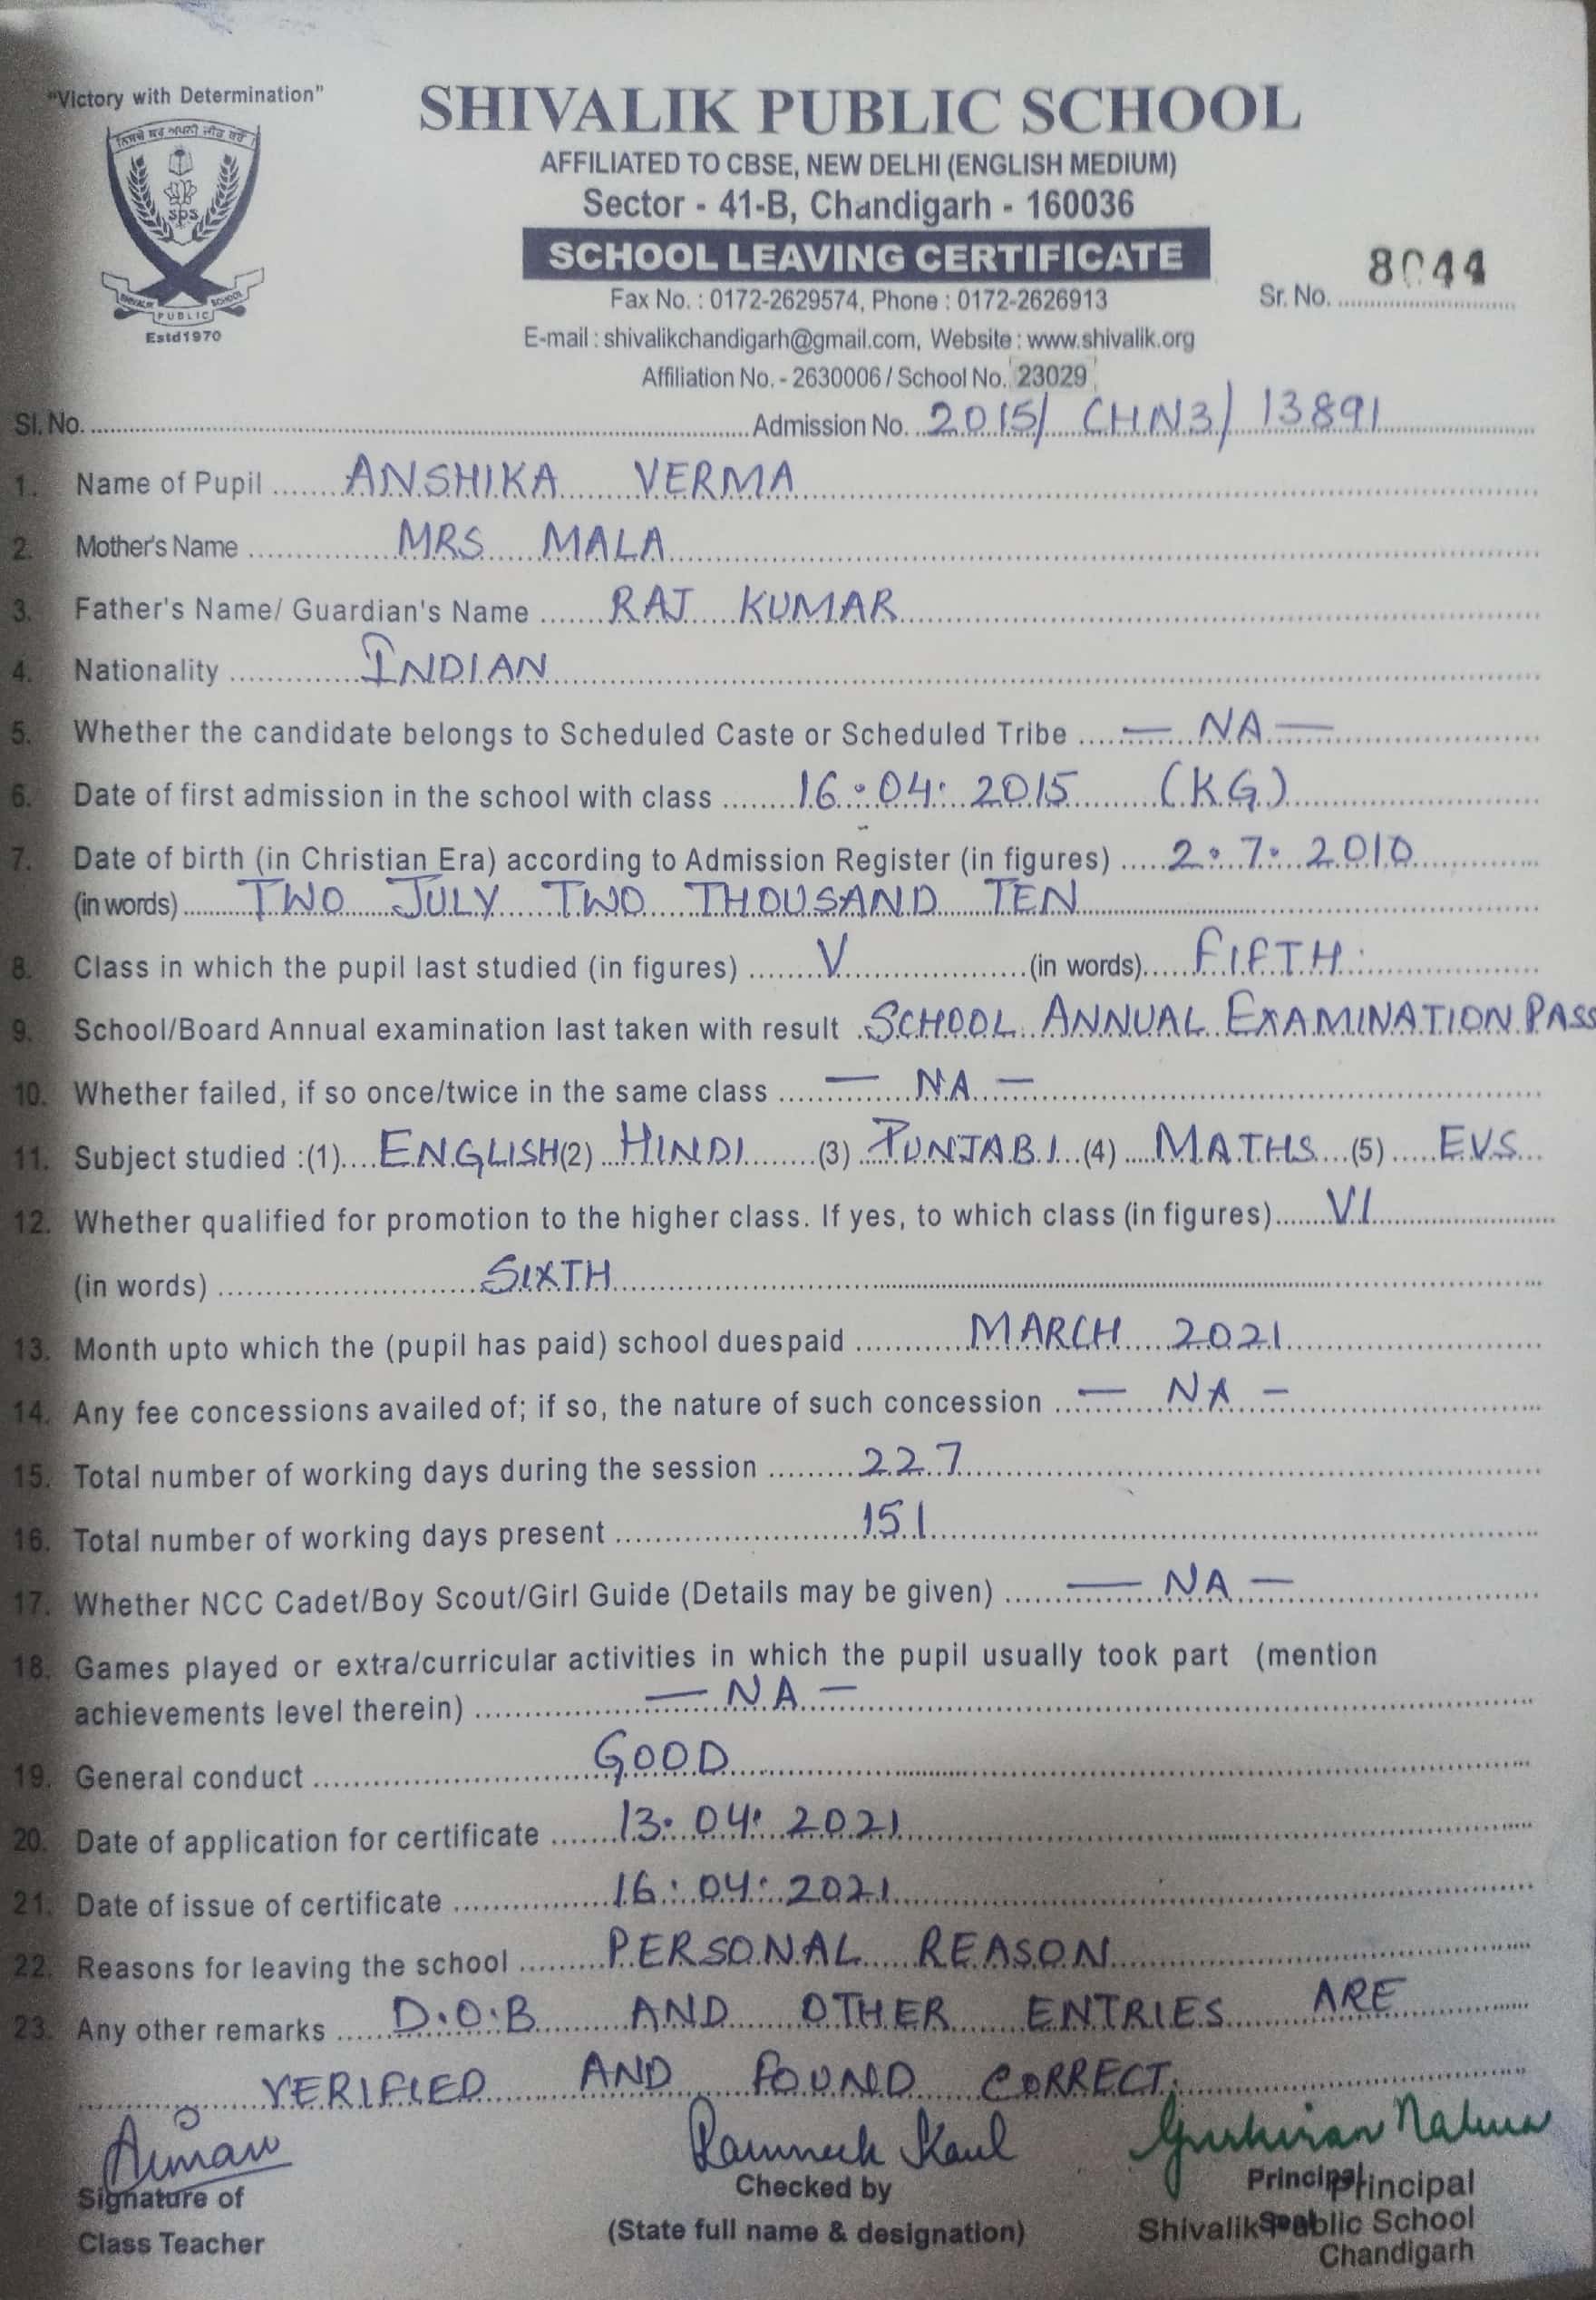 "Victory with Determination"
SHIVALIK PUBLIC SCHOOL
AFFILIATED TO CBSE, NEW DELHI (ENGLISH MEDIUM)
Sector - 41-B, Chandigarh - 160036
SCHOOL LEAVING CERTIFICATE
sps
SHIVALIK PUBLIC SCHOOL
Estd 1970
Fax No. : 0172-2629574, Phone : 0172-2626913
Sr. No. 8044
E-mail : shivalikchandigarh@gmail.com, Website : www.shivalik.org
Affiliation No. - 2630006 / School No. 23029
Sl. No. Admission No. 2015/ CHN3/ 13891
1. Name of Pupil ANSHIKA VERMA
2. Mother's Name MRS MALA
3. Father's Name/ Guardian's Name RAJ KUMAR
4. Nationality INDIAN
5. Whether the candidate belongs to Scheduled Caste or Scheduled Tribe — NA —
6. Date of first admission in the school with class 16.04.2015 (KG)
7. Date of birth (in Christian Era) according to Admission Register (in figures) 2.7.2010
(in words) TWO JULY TWO THOUSAND TEN
8. Class in which the pupil last studied (in figures) V (in words) FIFTH
9. School/Board Annual examination last taken with result SCHOOL ANNUAL EXAMINATION PASS
10. Whether failed, if so once/twice in the same class — NA —
11. Subject studied :(1) ENGLISH (2) HINDI (3) PUNJABI (4) MATHS (5) EVS
12. Whether qualified for promotion to the higher class. If yes, to which class (in figures) VI
(in words) SIXTH
13. Month upto which the (pupil has paid) school duespaid MARCH 2021
14. Any fee concessions availed of; if so, the nature of such concession — NA —
15. Total number of working days during the session 227
16. Total number of working days present 151
17. Whether NCC Cadet/Boy Scout/Girl Guide (Details may be given) — NA —
18. Games played or extra/curricular activities in which the pupil usually took part (mention
achievements level therein) — NA —
19. General conduct GOOD
20. Date of application for certificate 13.04.2021
21. Date of issue of certificate 16.04.2021
22. Reasons for leaving the school PERSONAL REASON
23. Any other remarks D.O.B AND OTHER ENTRIES ARE
VERIFIED AND FOUND CORRECT.
Ramneek Kaul
Signature of
Class Teacher
Checked by
(State full name & designation)
Principal
Seal
Principal
Shivalik Public School
Chandigarh